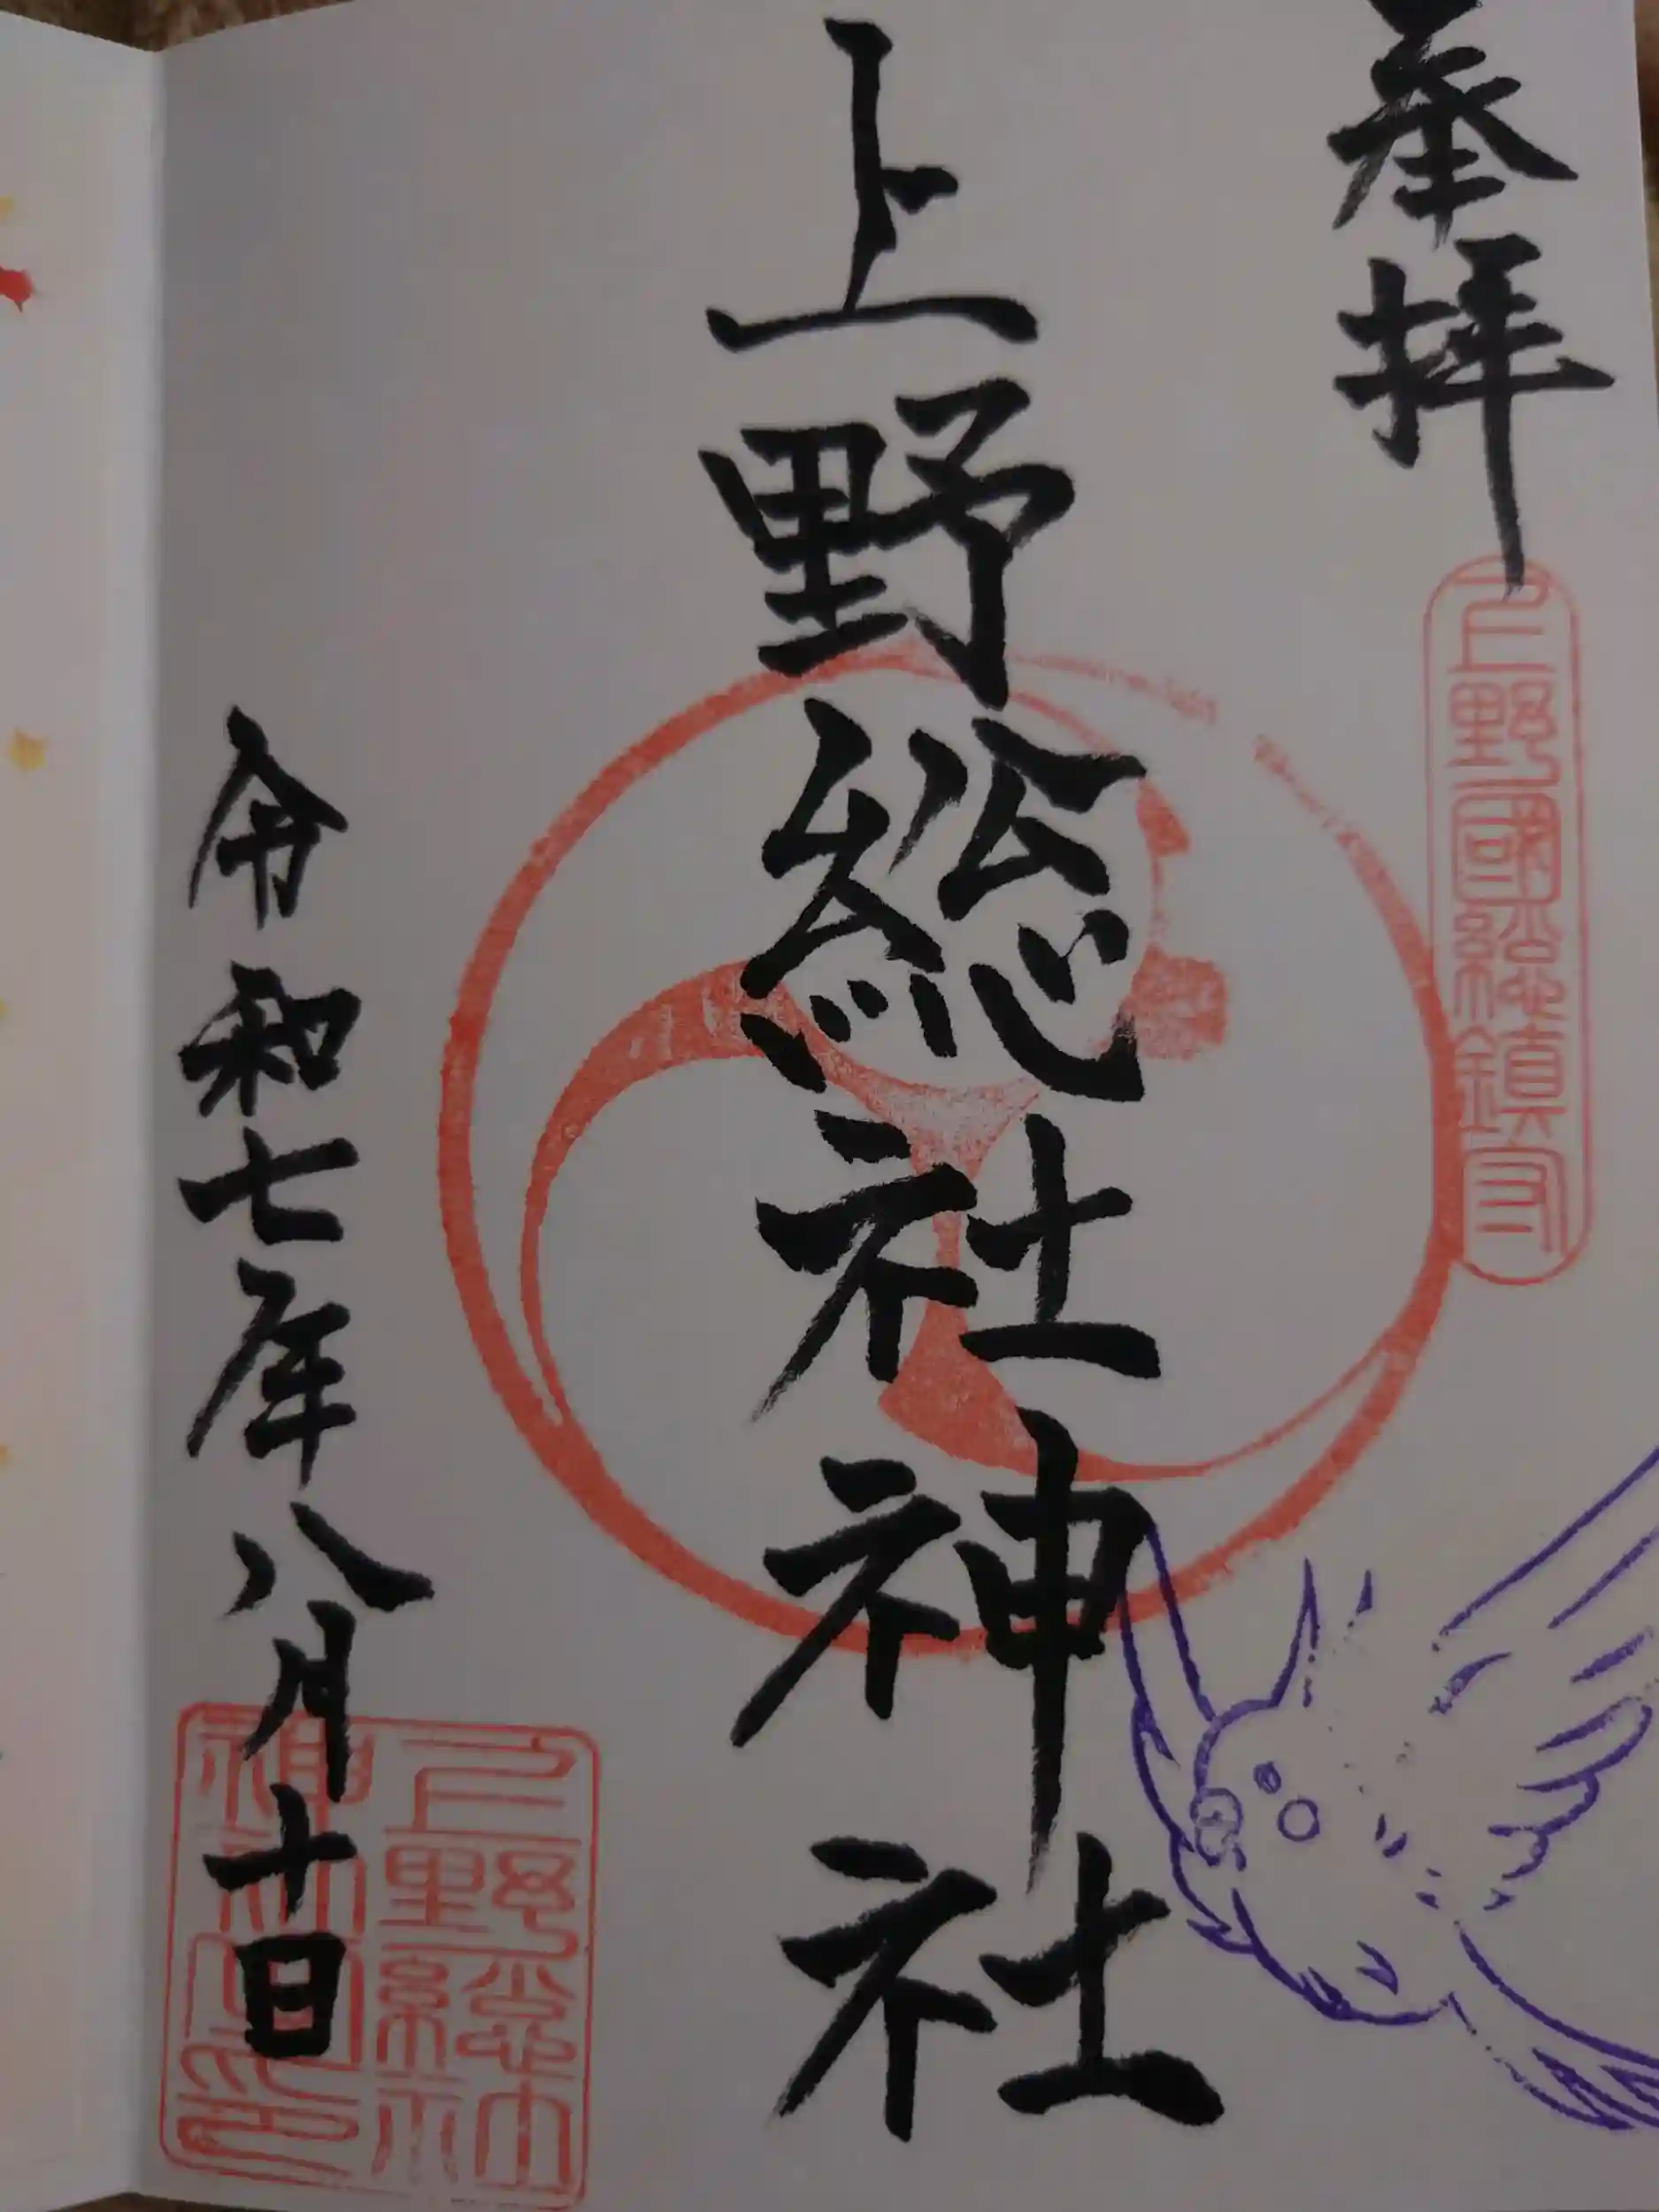 奉拝
上野國総鎮守
上野総社神社
令和七年八月十日
上野總社
神社之印